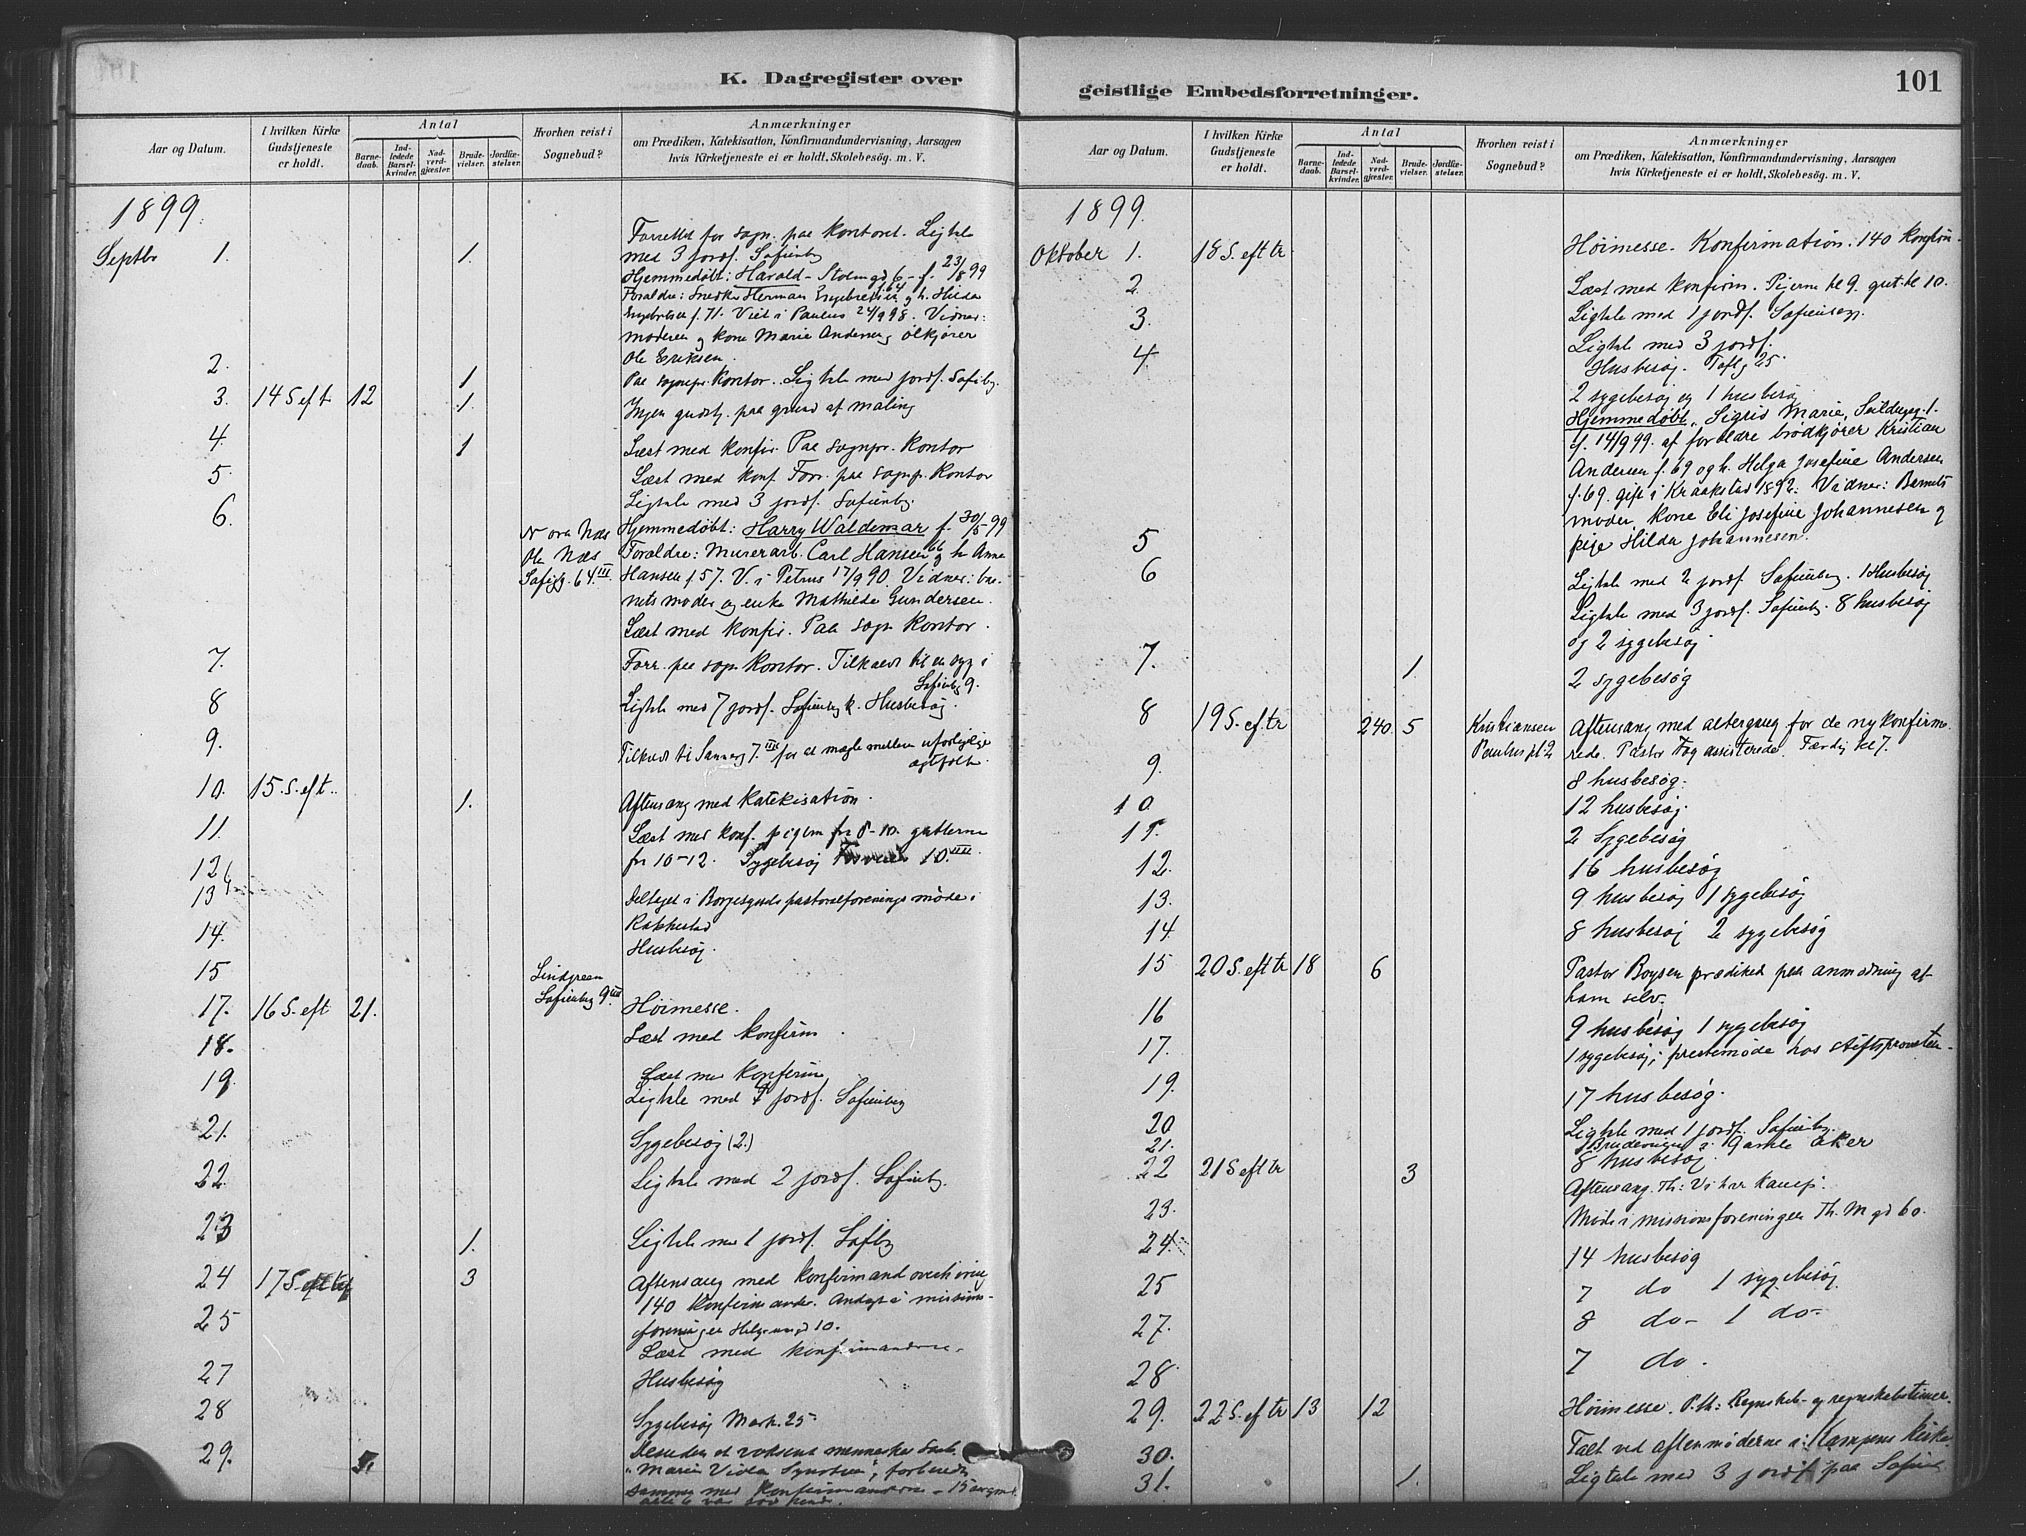 K. Dagregister over
Aar og Datum.
I hvilken Kirke Gudstjeneste er holdt.
Antal
Barnedaab.
Indledede Barselkvinder.
Nadverdgjæster.
Brudevielser.
Jordfæstelser.
Hvorhen reist i Sognebud?
Anmærkninger
om Prædiken, Katekisation, Konfirmandundervisning, Aarsagen
hvis Kirketjeneste ei er holdt, Skolebesög. m. V.
1899.
Septbr 1. 1. Forrettet for sogn. paa kontoret. Ligtale
med 3 jordf. Sofienbg
Hjemmedöbt: Harald - Stolmgd 6 - f. 23/8 99
Foraldre: Snedker Herman Engebretsen f. 64 og h. Hilda
Engebretsen f. 71. Viet i Paulus 24/9 98. Vidner:
moderen og kone Marie Andersen, ölkjører
Ole Eriksen.
2. 1 Paa sognepr. kontor. Ligtale med jordf. Sofienbg.
3. 14 S eft. 12 1. Ingen gudstj. paa grund af maling
4. 1 Læst med konfir. Paa sognpr. kontor
5. Læst med konf. Forr. paa sognp. kontor
Ligtale med 3 jordf. Sofienbg.
6. Nora Næs
Ole Næs
Sofigg. 64 III
Hjemmedöbt: Harry Waldemar f. 30/5 99
Foraldre: Murerarb. Carl Hansen f. 66 og h. Anna
Hansen f 57. V. i Petrus 17/9 90. Vidner: bar-
nets moder og enke Mathilde Gundersen.
Læst med konfir. Paa sogn kontor.
7. Forr. paa sogn kontor. Tilkaldt til en syg i
Sofienbg 9.
8 Ligtale med 7 jordf. Sofienbg k. Husbesög.
9. Tilkaldt til Sannerg 7. III for at mægle mellem uforligelige
ægtefolk.
10. 15. S. eft. 1. Aftensang med katekisation.
11. Læst med konf. pigerne fra 8-10. gutterne
fra 10-12. Sygebesög 10. IIII
12
13 Deltaget i Borgesyssels pastoralforenings möde i
Rakkestad
14. Husbesög.
15 Lindgreen
Sofienbg 9. III
17. 16 S. eft 21. Höimesse.
18. Læst med konfirm.
19. Læst med konfirm
Ligtale med jordf. Sofienbg
21. Sygebesög (2.)
22. Ligtale med 2 jordf. Sofienbg.
23 1. Ligtale med 1 jordf. Sofbg
24 17 S. eft 3 Aftensang med konfirmandoverhöring
140 konfirmander. Andagt i missions-
25 foreningen Helgesensgd 10.
Læst med konfirmanderne.
27 Husbesög
28 Sygebesög Mark. 25
29. Desuden et voksent menneske
"Maria Viola ", forberedt
sammen med konfirmanderne - 15 aar

geistlige Embedsforretninger.
101
Aar og Datum.
I hvilken Kirke Gudstjeneste er holdt.
Antal
Barnedaab.
Indledede Barselkvinder.
Nadverdgjæster.
Brudevielser.
Jordfæstelser.
Hvorhen reist i Sognebud?
Anmærkninger
om Prædiken, Katekisation, Konfirmandundervisning, Aarsagen
hvis Kirketjeneste ei er holdt, Skolebesög. m. V.
1899.
Oktober 1. 18 S. eft tr Höimesse. Konfirmation. 140 konfirm.
2. Læst med konfirm. Pigerne kl 9. gut. kl 10.
3. Ligtale med 1 jordf. Sofienbg.
4 Ligtale med 3 jordf.
Husbesög. Toftg 25.
2 sygebesög og 1 husbesög
Hjemmedöbt, Sigrid Marie, Seildugsg. 1.
f. 14/9 99. af foraldre brödkjører Kristian
Andersen f. 69 og h. Helga Josefine Andersen
f. 69. gift i Kraakstad 1892. Vidner: Barnets
moder, kone Eli Josefine Johannesen og
pige Hilda Johannesen.
5
6 Ligtale med 2 jordf Sofienbg. 1 Husbesög
Ligtale med 3 jordf. Sofienbg. 8 husbesög
og 2 sygebesög
7. 1. 2 sygebesög
8 19 S. ef. tr 240 5 Kristiansen
Pauluspl. 2
Aftensang med altergang for de nykonfirme-
rede. Pastor Fog assisterede. Færdig kl 7.
9. 8 husbesög.
10. 12 husbesög.
11. 2 Sygebesög
12. 16 husbesög
13. 9 husbesög 1 sygebesög
14. 8 husbesög 2 sygebesög
15 20 S. eft tr 18 6 Pastor Boysen prædiked paa anmodning af
ham selv.
16 9 husbesög 1 sygebesög
17. 1 sygebesög; prestemöde hos stiftsprovsten.
19. 17 husbesög.
20 Ligtale med 1 jordf. Sofienbg.
21. Brudevielse i Gamle Aker
8 husbesög.
22 21 S eft tr 3 Aftensang. Th: Vi har kamp.
23. Möde i missionsforeningen Th. M gd 60.
24. 14 husbesög
25 7 do 1 sygebesög
27. 8 do- 1 do-
28. 7 do.
29. 22 S. ef tr 13 12 Höimesse. P. th: Regnskab og regnskabstimer.
30. Talt ved aftenmöderne i Kampens kirke.
31. 1. Ligtale med 3 jordf paa Sofienb